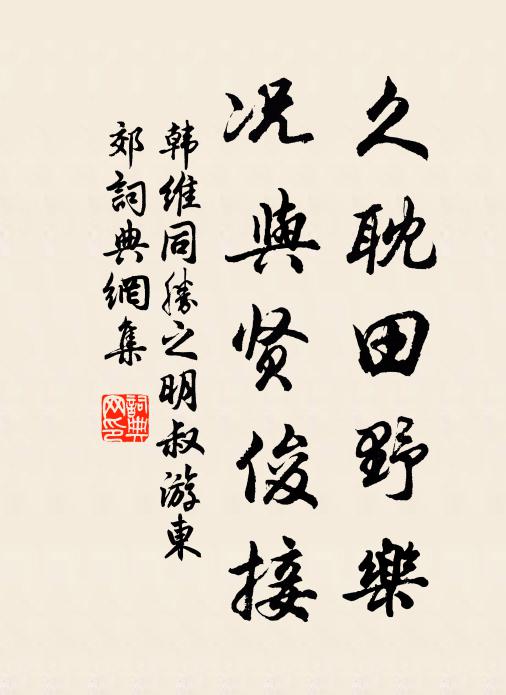 久耽田野樂
况與贤俊接
韩维同勝之明叔游東
郊詞典網集
詞典
网印